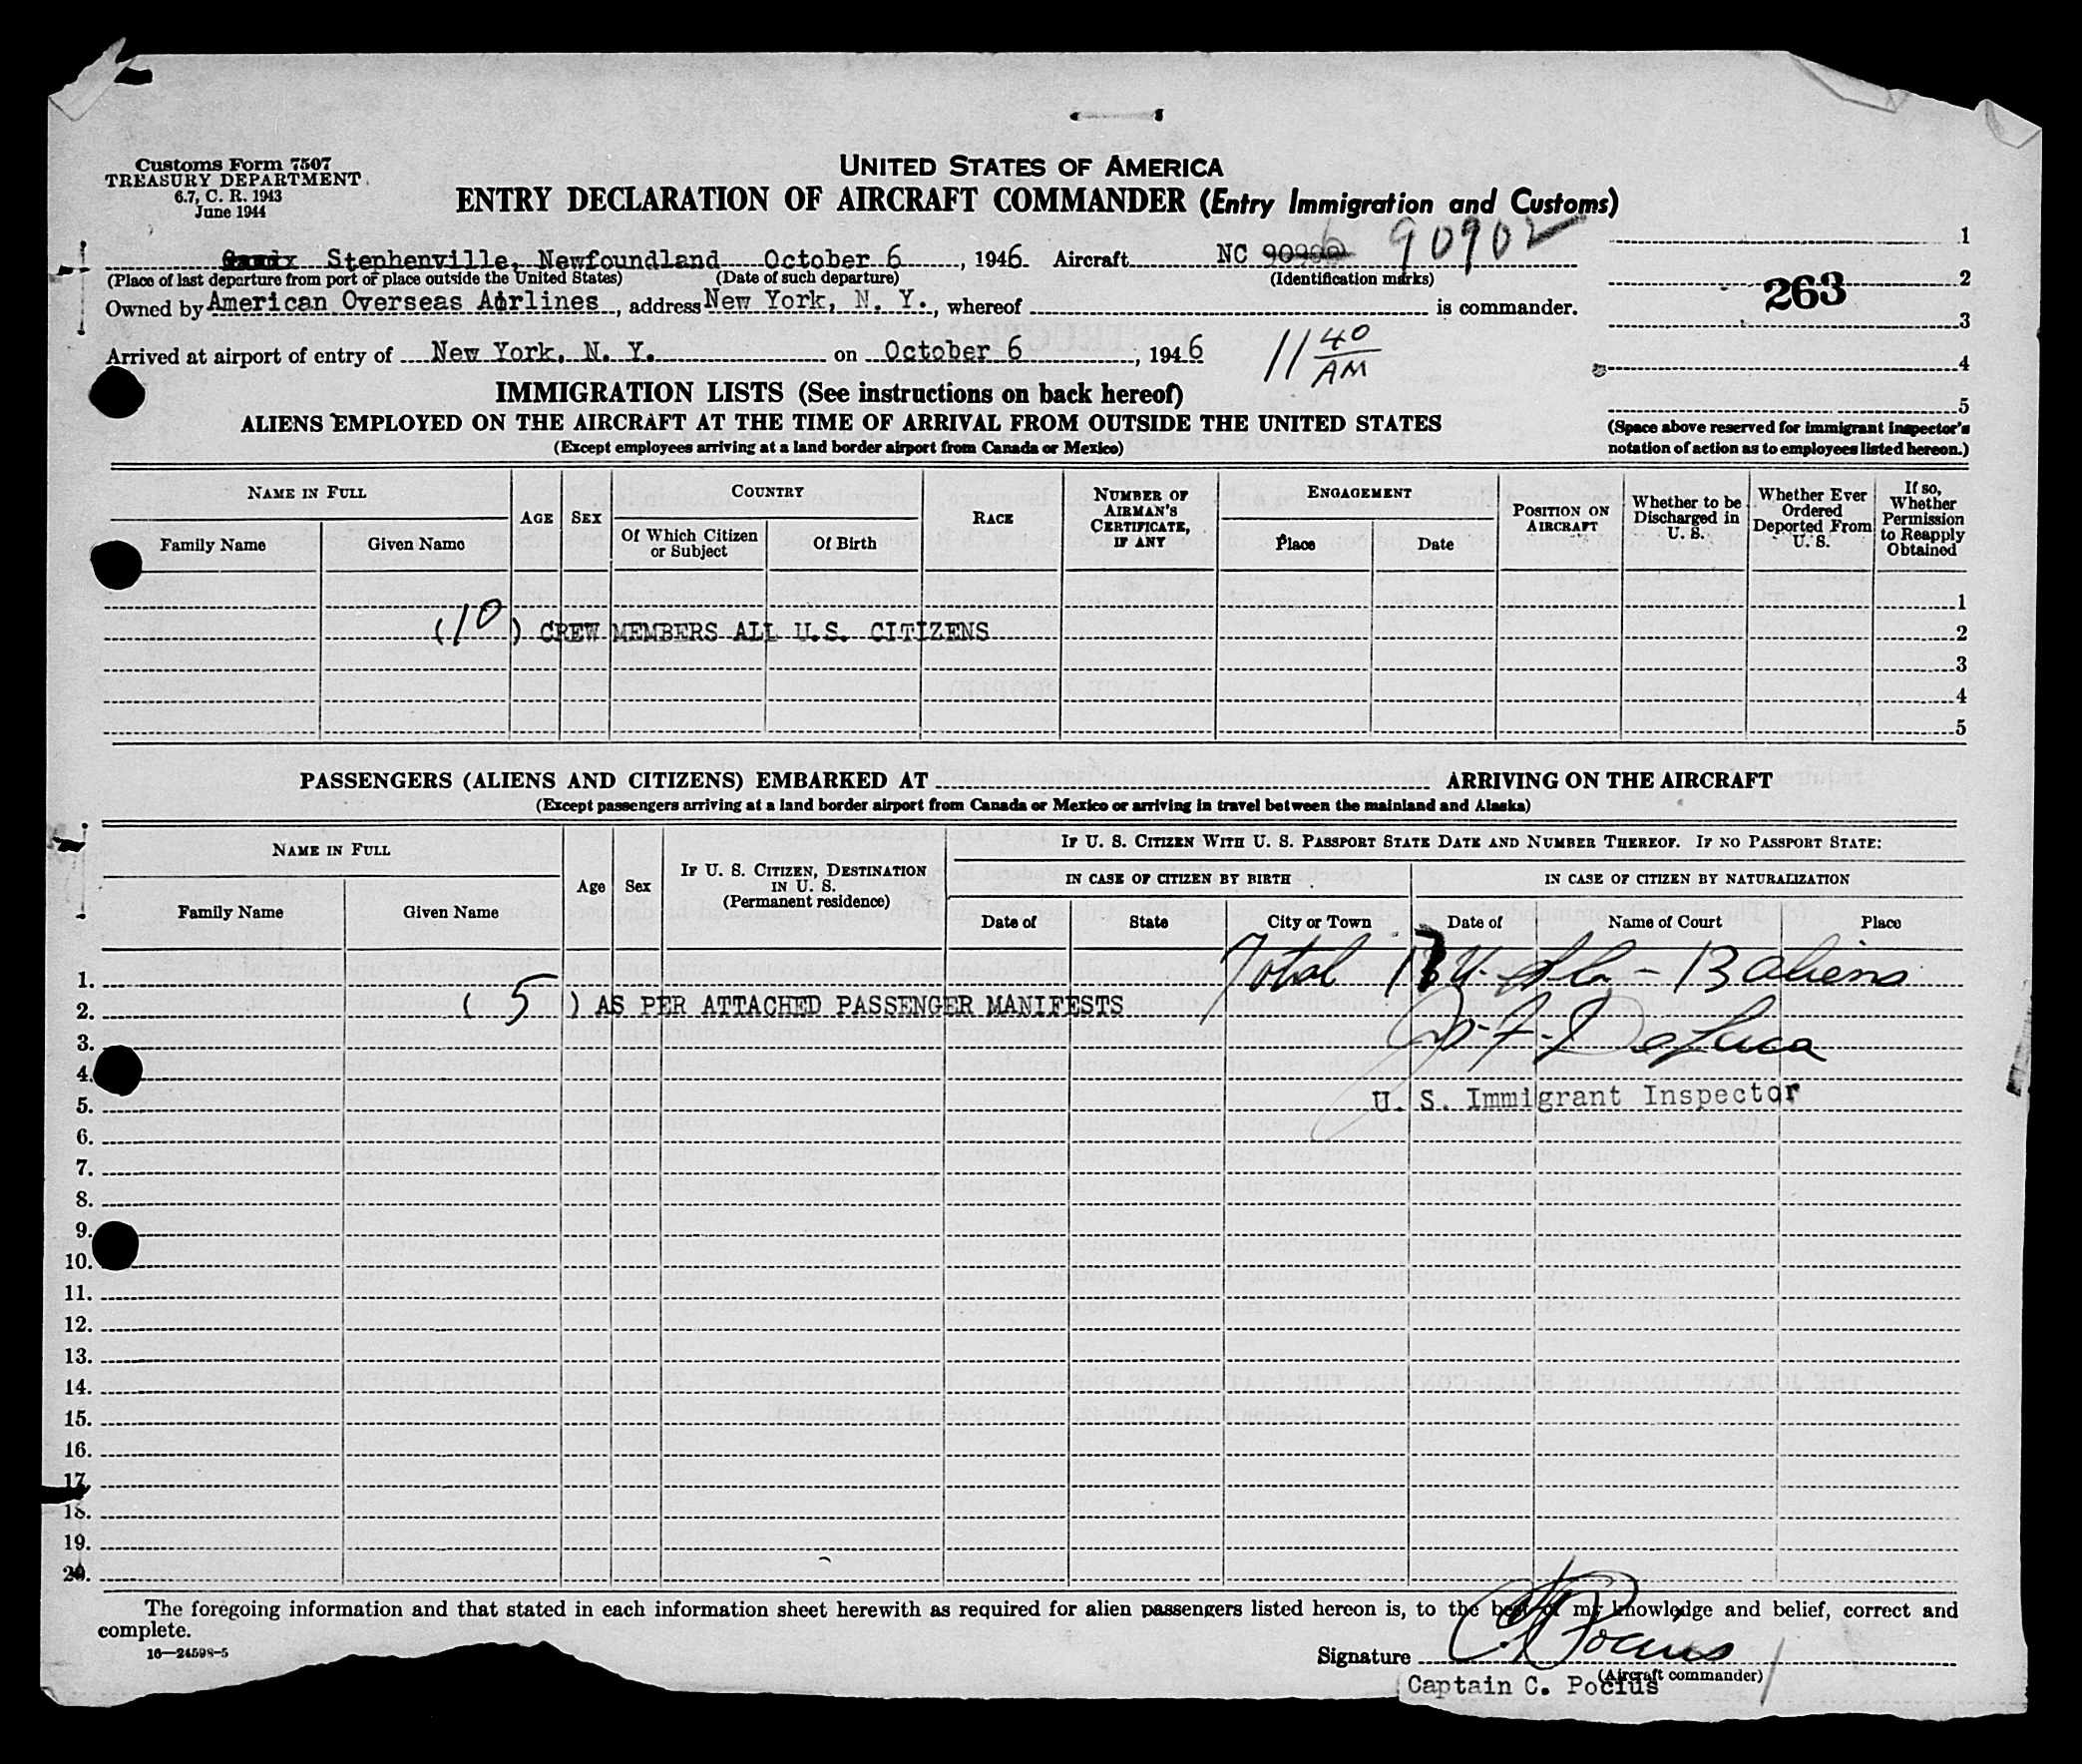 Customs Form 7507
TREASURY DEPARTMENT
6.7, C. R. 1943
June 1944
UNITED STATES OF AMERICA
ENTRY DECLARATION OF AIRCRAFT COMMANDER (Entry Immigration and Customs)
Stephenville, Newfoundland October 6, 1946. Aircraft NC 90902
(Place of last departure from port or place outside the United States) (Date of such departure) (Identification marks)
Owned by American Overseas Airlines, address New York, N. Y., whereof is commander.
Arrived at airport of entry of New York, N. Y. on October 6, 1946 11 40 AM
1
2
263
3
4
5
(Space above reserved for immigrant inspector's
notation of action as to employees listed hereon.)
IMMIGRATION LISTS (See instructions on back hereof)
ALIENS EMPLOYED ON THE AIRCRAFT AT THE TIME OF ARRIVAL FROM OUTSIDE THE UNITED STATES
(Except employees arriving at a land border airport from Canada or Mexico)
NAME IN FULL
Family Name Given Name
AGE SEX
COUNTRY
Of Which Citizen or Subject Of Birth
RACE
NUMBER OF AIRMAN'S CERTIFICATE, IF ANY
ENGAGEMENT
Place Date
POSITION ON AIRCRAFT
Whether to be Discharged in U. S.
Whether Ever Ordered Deported From U. S.
If so, Whether Permission to Reapply Obtained
1
(10) CREW MEMBERS ALL U.S. CITIZENS 2
3
4
5
PASSENGERS (ALIENS AND CITIZENS) EMBARKED AT ARRIVING ON THE AIRCRAFT
(Except passengers arriving at a land border airport from Canada or Mexico or arriving in travel between the mainland and Alaska)
NAME IN FULL
Family Name Given Name
Age Sex
IF U. S. CITIZEN, DESTINATION IN U. S.
(Permanent residence)
IF U. S. CITIZEN WITH U. S. PASSPORT STATE DATE AND NUMBER THEREOF. IF NO PASSPORT STATE:
IN CASE OF CITIZEN BY BIRTH IN CASE OF CITIZEN BY NATURALIZATION
Date of State City or Town Date of Name of Court Place
1. Total 13 aliens
2. ( 5 ) AS PER ATTACHED PASSENGER MANIFESTS
3. DeLuca
4.
5. U. S. Immigrant Inspector
6.
7.
8.
9.
10.
11.
12.
13.
14.
15.
16.
17.
18.
19.
20.
The foregoing information and that stated in each information sheet herewith as required for alien passengers listed hereon is, to the best of my knowledge and belief, correct and
complete.
16—24598-5
Signature C Pocius
(Aircraft commander)
Captain C. Pocius